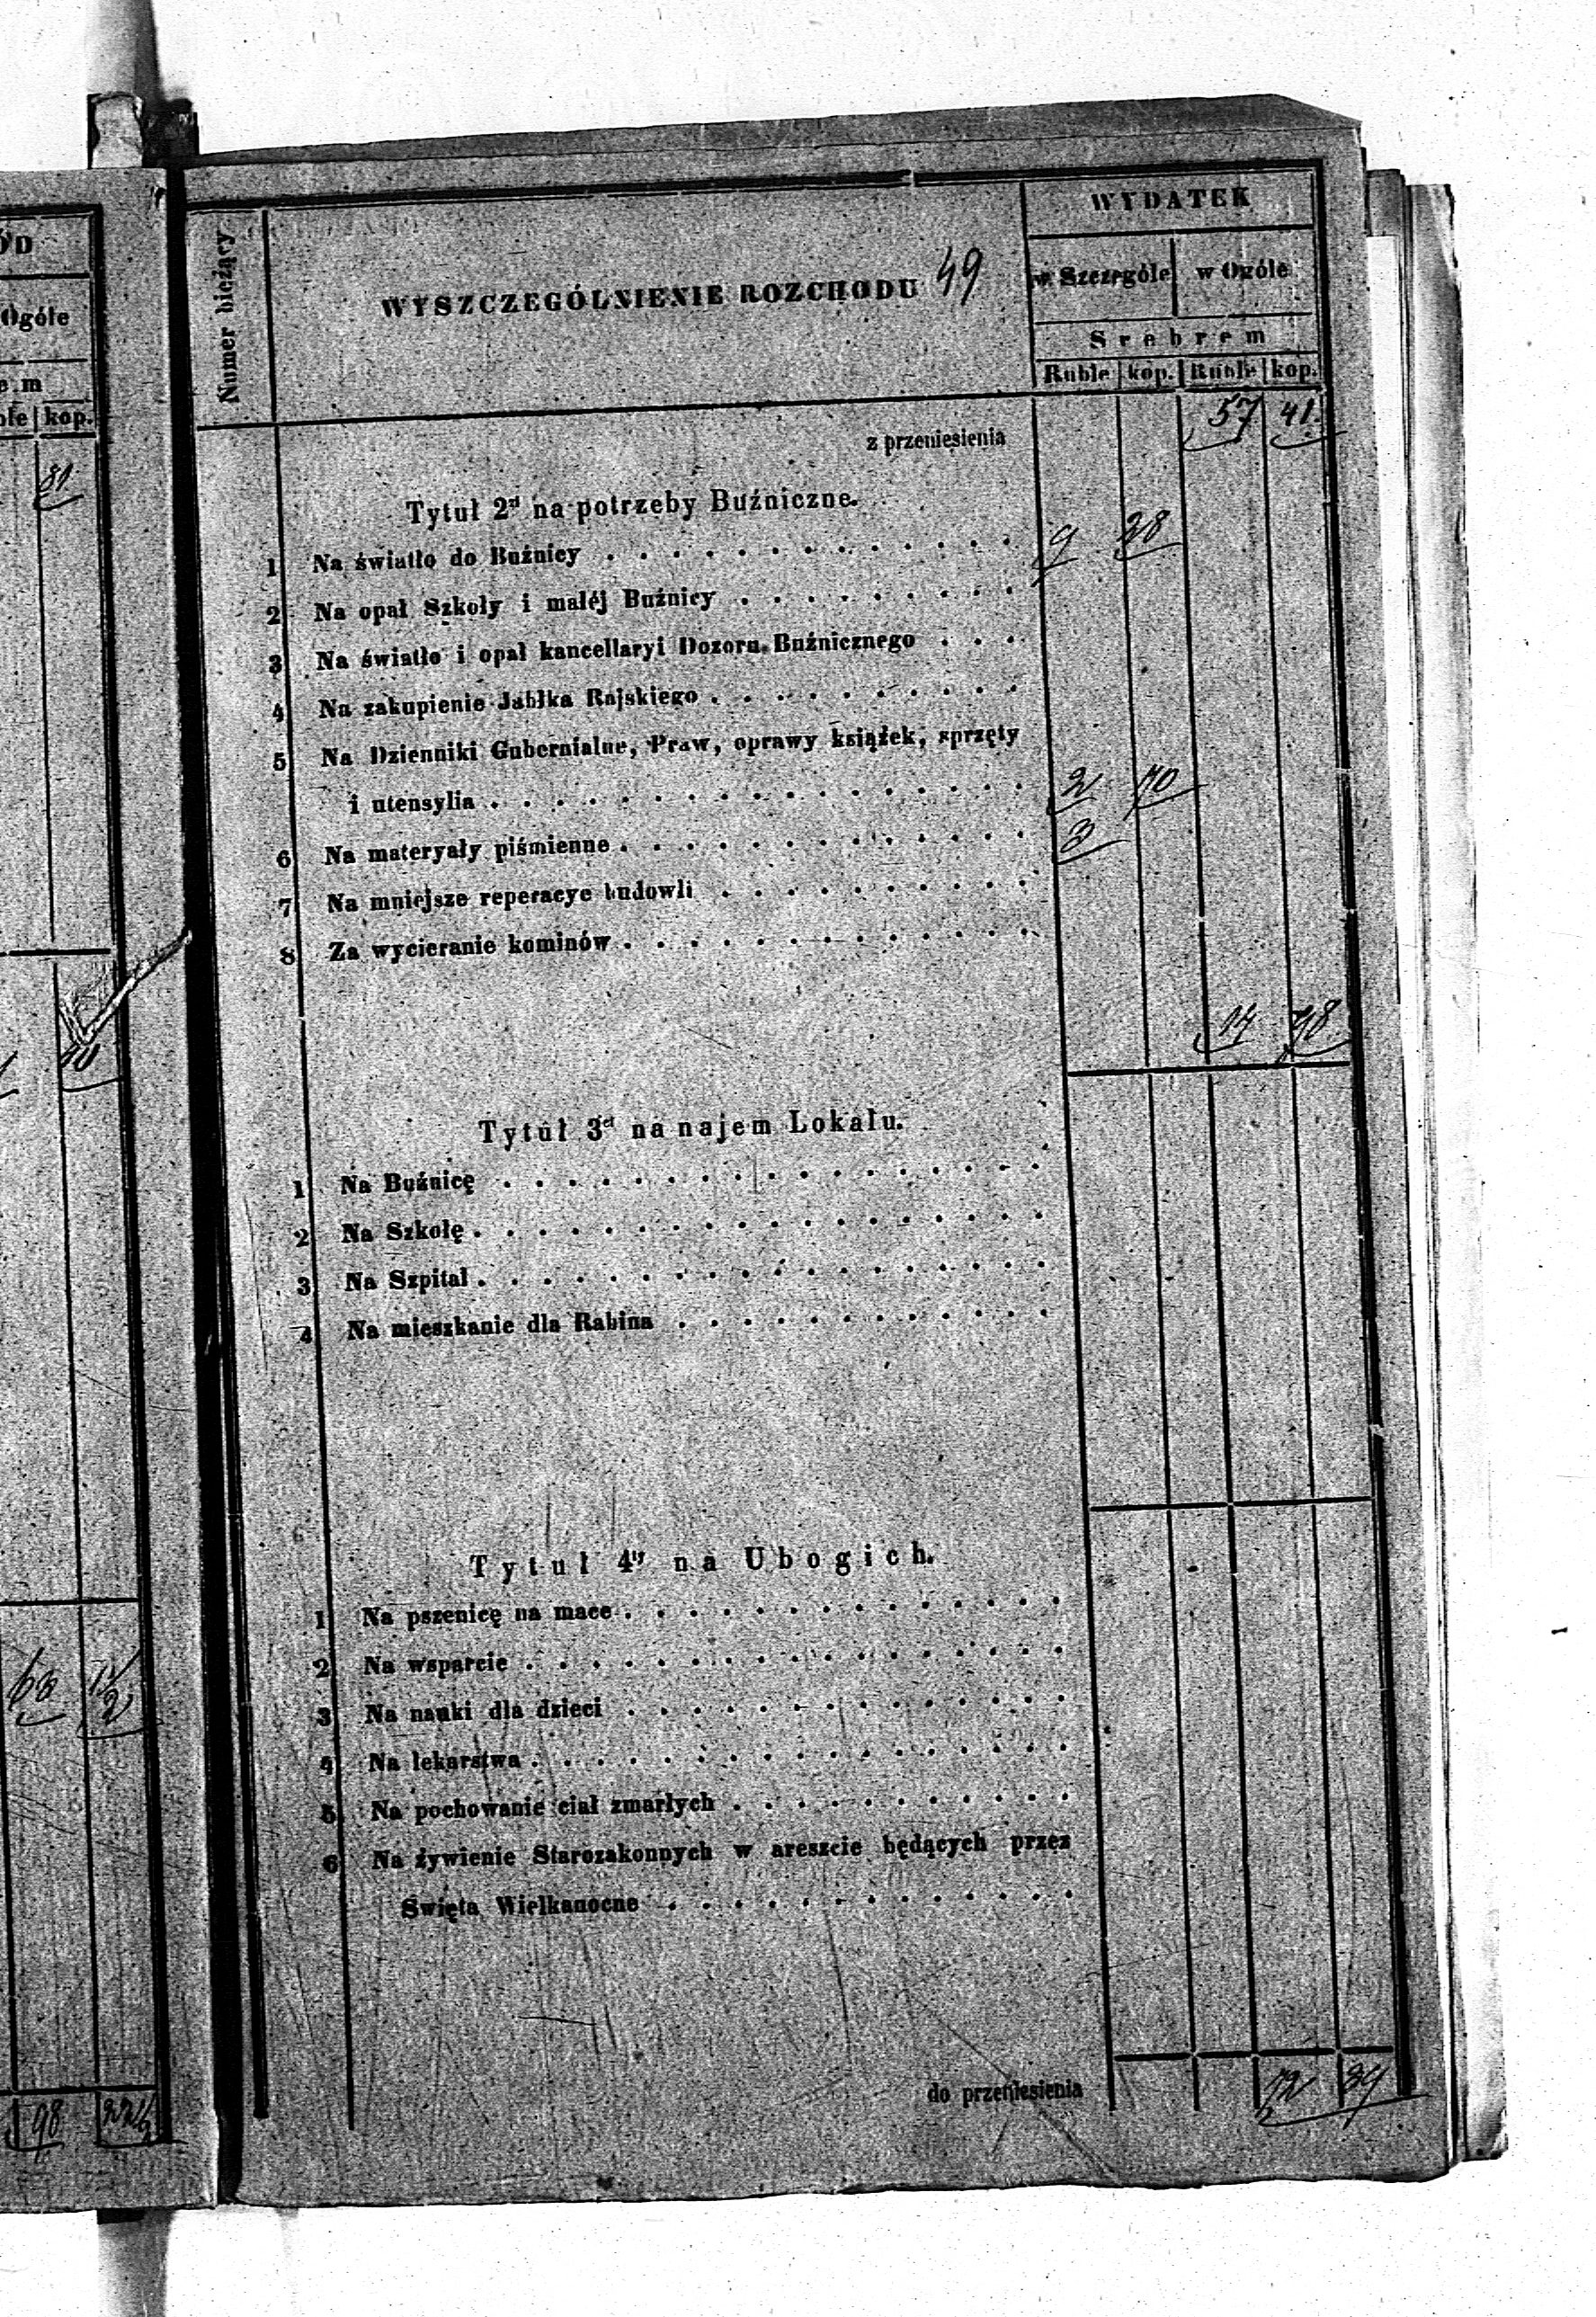 ÓD
Ogóle
em
ble kop.
81
98 22½
Numer bieżący
WYSZCZEGÓLNIENIE ROZCHODU 49
WYDATEK
w Szczególe w Ogóle
Srebrem
Ruble kop. Ruble kop.
z przeniesienia 57 41
Tytuł 2gi na potrzeby Buźniczne.
1 Na światło do Buźnicy . . . . . . . . . . . . . 9 28
2 Na opał Szkoły i małéj Buźnicy . . . . . . . . .
3 Na światło i opał kancellaryi Dozoru Buźnicznego . . .
4 Na zakupienie Jabłka Rajskiego . . . . . . . . . .
5 Na Dzienniki Gubernialne, Praw, oprawy książek, sprzęty
i utensylia . . . . . . . . . . . . . . . . . 2 70
6 Na materyały piśmienne . . . . . . . . . . . . . 3
7 Na mniejsze reperacye budowli . . . . . . . . . .
8 Za wycieranie kominów . . . . . . . . . . . . .
14 98
Tytuł 3ci na najem Lokalu.
1 Na Buźnicę . . . . . . . . . . . . . . . . .
2 Na Szkołę . . . . . . . . . . . . . . . . . .
3 Na Szpital . . . . . . . . . . . . . . . . . .
4 Na mieszkanie dla Rabina . . . . . . . . . . . .
Tytuł 4ty na Ubogich.
1 Na pszenicę na mace . . . . . . . . . . . . . .
2 Na wsparcie . . . . . . . . . . . . . . . . .
3 Na nauki dla dzieci . . . . . . . . . . . . . .
4 Na lekarstwa . . . . . . . . . . . . . . . . .
5 Na pochowanie ciał zmarłych . . . . . . . . . . .
6 Na żywienie Starozakonnych w areszcie będących przez
Święta Wielkanocne . . . . . . . . . . . . .
do przeniesienia 72 39